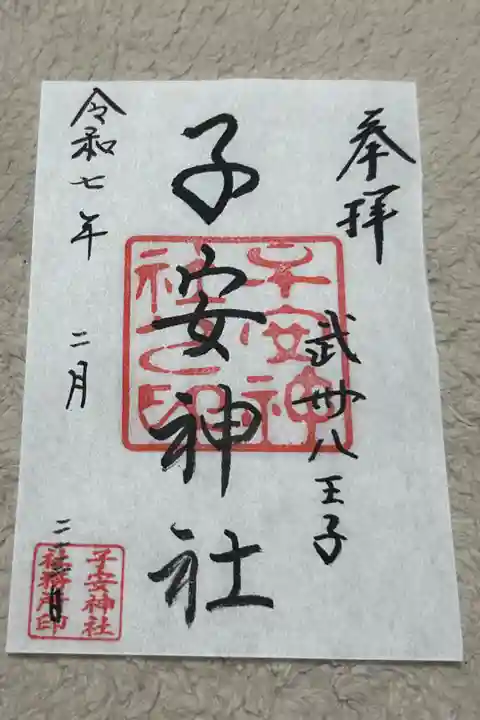 奉拝
武州八王子
子安神社
子安神社之印
令和七年 二月
子安神社
社務所印